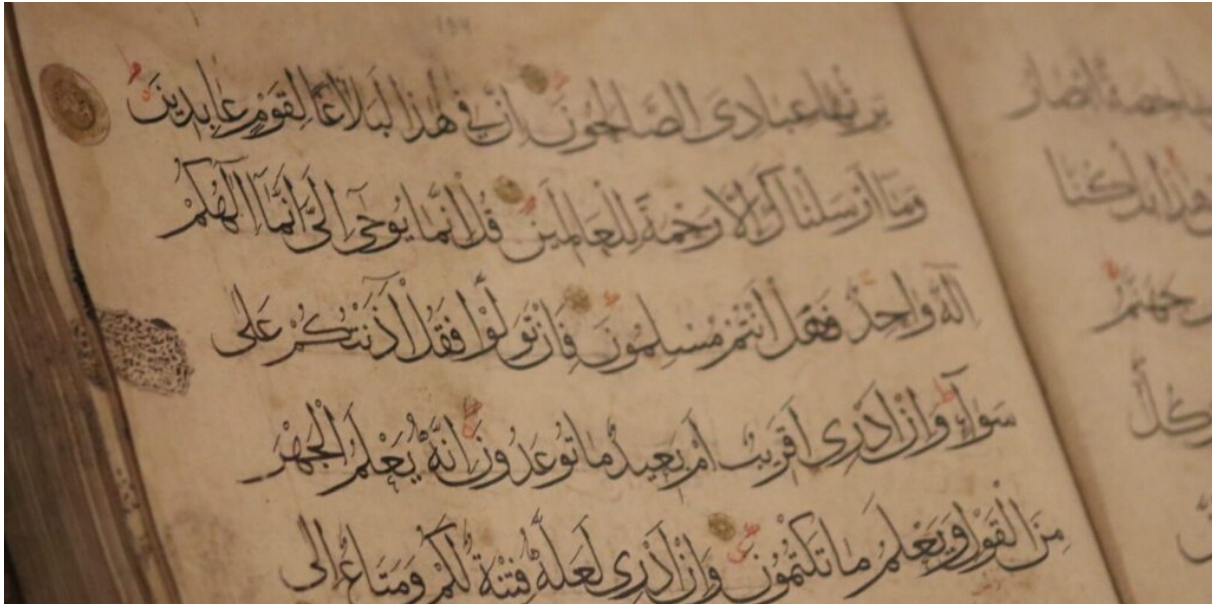 ١٥٩
يرثها عبادي الصالحون إن في هذا لبلاغا لقوم عابدين
وَمَا أَرْسَلْنَاكَ إِلَّا رَحْمَةً لِلْعَالَمِينَ قُلْ إِنَّمَا يُوحَى إِلَيَّ أَنَّمَا إِلَهُكُمْ
إِلَهٌ وَاحِدٌ فَهَلْ أَنْتُمْ مُسْلِمُونَ فَإِنْ تَوَلَّوْا فَقُلْ آذَنْتُكُمْ عَلَى
سَوَاءٍ وَإِنْ أَدْرِي أَقَرِيبٌ أَمْ بَعِيدٌ مَا تُوعَدُونَ إِنَّهُ يَعْلَمُ الْجَهْرَ
مِنَ الْقَوْلِ وَيَعْلَمُ مَا تَكْتُمُونَ وَإِنْ أَدْرِي لَعَلَّهُ فِتْنَةٌ لَكُمْ وَمَتَاعٌ إِلَى
جهنم
وكل